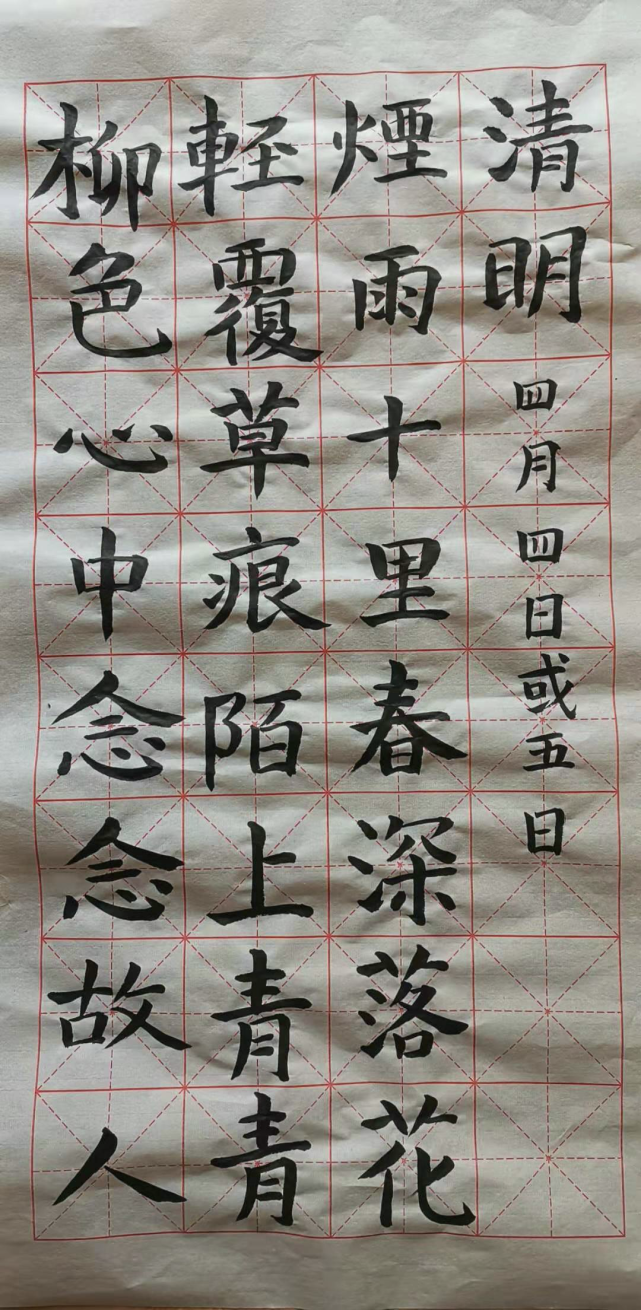 清明四月四日或五日
煙雨十里春深落花
輕覆草痕陌上青青
柳色心中念念故人